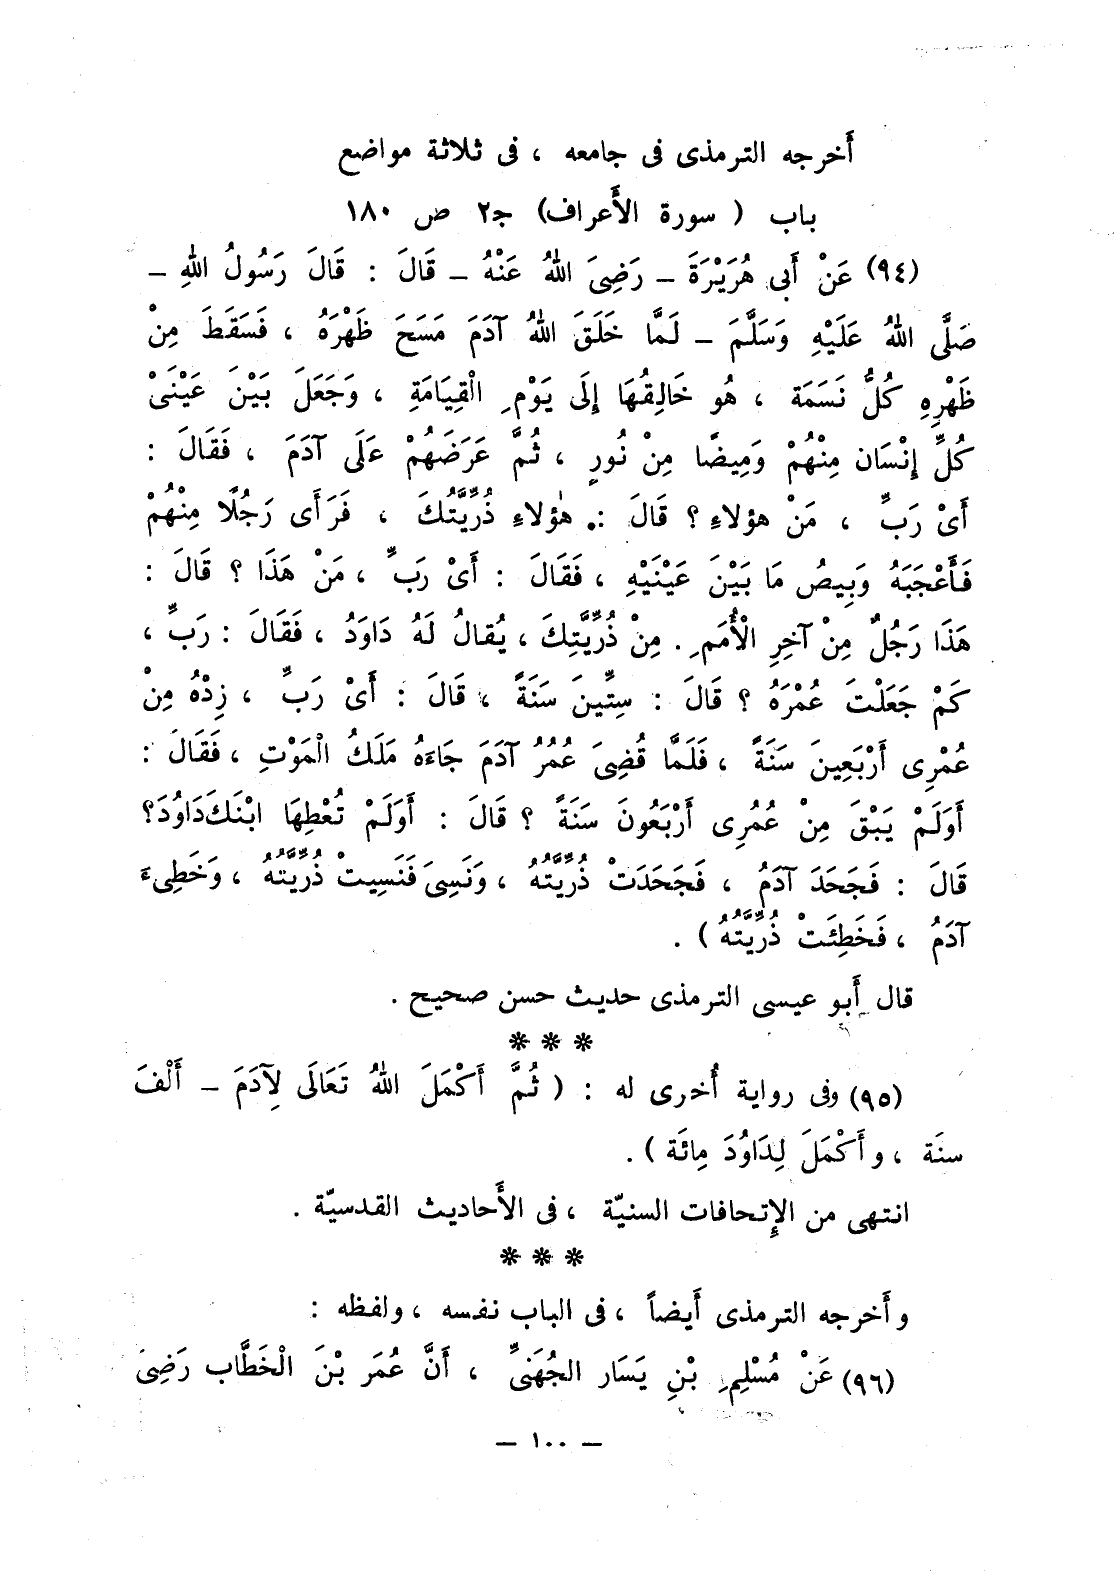 أَخرجه الترمذى فى جامعه ، فى ثلاثة مواضع
باب ( سورة الأَعراف) جـ٢ ص ١٨٠
(٩٤) عَنْ أَبى هُرَيْرَةَ – رَضِىَ اللهُ عَنْهُ – قَالَ : قَالَ رَسُولُ اللهِ –
صَلَّى اللهُ عَلَيْهِ وَسَلَّمَ – لَمَّا خَلَقَ اللهُ آدَمَ مَسَحَ ظَهْرَهُ ، فَسَقَطَ مِنْ
ظَهْرِهِ كُلُّ نَسَمَة ، هُو خَالِقُهَا إِلَى يَوْمِ الْقِيَامَةِ ، وَجَعَلَ بَيْنَ عَيْنَىْ
كُلِّ إِنْسَان مِنْهُمْ وَمِيضًا مِنْ نُورٍ ، ثُمَّ عَرَضَهُمْ عَلَى آدَمَ ، فَقَالَ :
أَىْ رَبِّ ، مَنْ هؤلاءِ ؟ قَالَ : هٰؤلاءِ ذُرِّيَّتُكَ ، فَرَأَى رَجُلًا مِنْهُمْ
فَأَعْجَبَهُ وَبِيصُ مَا بَيْنَ عَيْنَيْهِ ، فَقَالَ : أَىْ رَبِّ ، مَنْ هَذَا ؟ قَالَ :
هَذَا رَجُلٌ مِنْ آخِرِ الْأُمَمِ . مِنْ ذُرِّيَّتِكَ ، يُقالُ لَهُ دَاوَدُ ، فَقَالَ : رَبِّ ،
كَمْ جَعَلْتَ عُمْرَهُ ؟ قَالَ : سِتِّينَ سَنَةً ، قَالَ : أَىْ رَبِّ ، زِدْهُ مِنْ
عُمْرِى أَرْبَعِينَ سَنَةً ، فَلَمَّا قُضِىَ عُمُرُ آدَمَ جَاءَهُ مَلَكُ الْمَوْتِ ، فَقَالَ :
أَوَلَمْ يَبْقَ مِنْ عُمُرِى أَرْبَعُونَ سَنَةً ؟ قَالَ : أَوَلَمْ تُعْطِهَا ابْنَكَ دَاوُدَ؟
قَالَ : فَجَحَدَ آدَمُ ، فَجَحَدَتْ ذُرِّيَّتهُ ، وَنَسِىَ فَنَسِيتْ ذُرِّيَّتُهُ ، وَخَطِىءَ
آدَمُ ، فَخَطِئَتْ ذُرِّيَّتُهُ ) .
قال أَبو عيسى الترمذى حديث حسن صحيح .
* * *
(٩٥) وفى رواية أُخرى له : ( ثُمَّ أَكْمَلَ اللهُ تَعَالَى لِآدَمَ – أَلْفَ
سنَة ، وأَكْمَلَ لِدَاوُدَ مِائَة ) .
انتهى من الإِتحافات السنيّة ، فى الأَحاديث القدسيّة .
* * *
وأَخرجه الترمذى أَيضاً ، فى الباب نفسه ، ولفظه :
(٩٦) عَنْ مُسْلِمِ بْنِ يَسَار الجُهَنىِّ ، أَنَّ عُمَر بْنَ الْخَطَّاب رَضِىَ
– ١٠٠ –